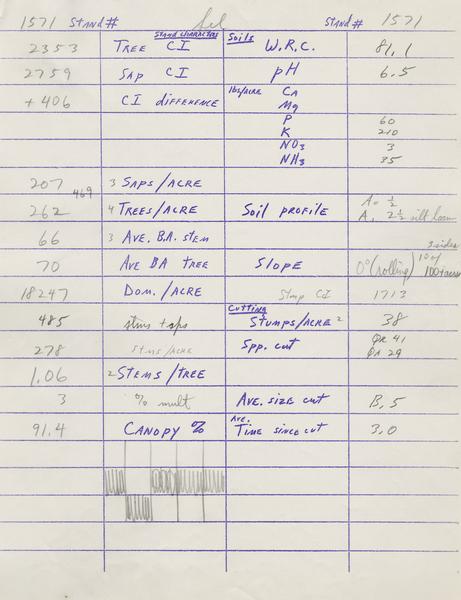 1571 STAND# Sel STAND# 1571
STAND CHARACTERS Soils
2353 TREE CI W.R.C. 81.1
2759 SAP CI pH 6.5
+ 406 CI DIFFERENCE lbs/acre CA
Mg
P 60
K 210
NO3 3
NH3 35
207 3 SAPS/ACRE
469
262 4 TREES/ACRE Soil PROFILE A0 = 1/2
A1 2 1/2 silt loam
66 3 AVE. B.A. STEM
70 AVE BA TREE SLOPE 0° (rolling) 3 sides
10 of
100+acres
18247 DOM./ACRE Stump CI 1713
Cutting
485 stms + sps STUMPS/ACRE 2 38
278 stms/acre Spp. cut QR 41
QA 29
1.06 2 STEMS/TREE
3 % mult AVE. SIZE CUT B, 5
91.4 CANOPY % AVE. TIME SINCE CUT 3.0